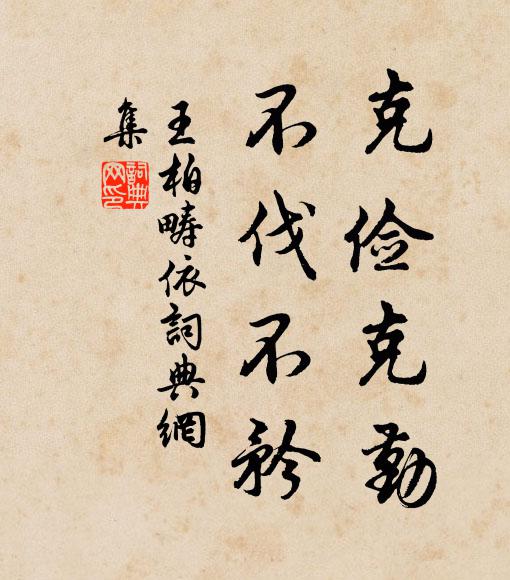 克俭克勤
不伐不矜
王柏畴依詞典網
集
詞典
网印